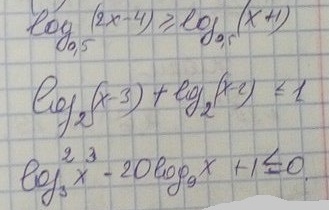 log₀,₅(2x-4) ≥ log₀,₅(x+1)
log₂(x-3) + log₂(x-2) ≤ 1
log₃²x³ - 20log₉x + 1 ≤ 0.